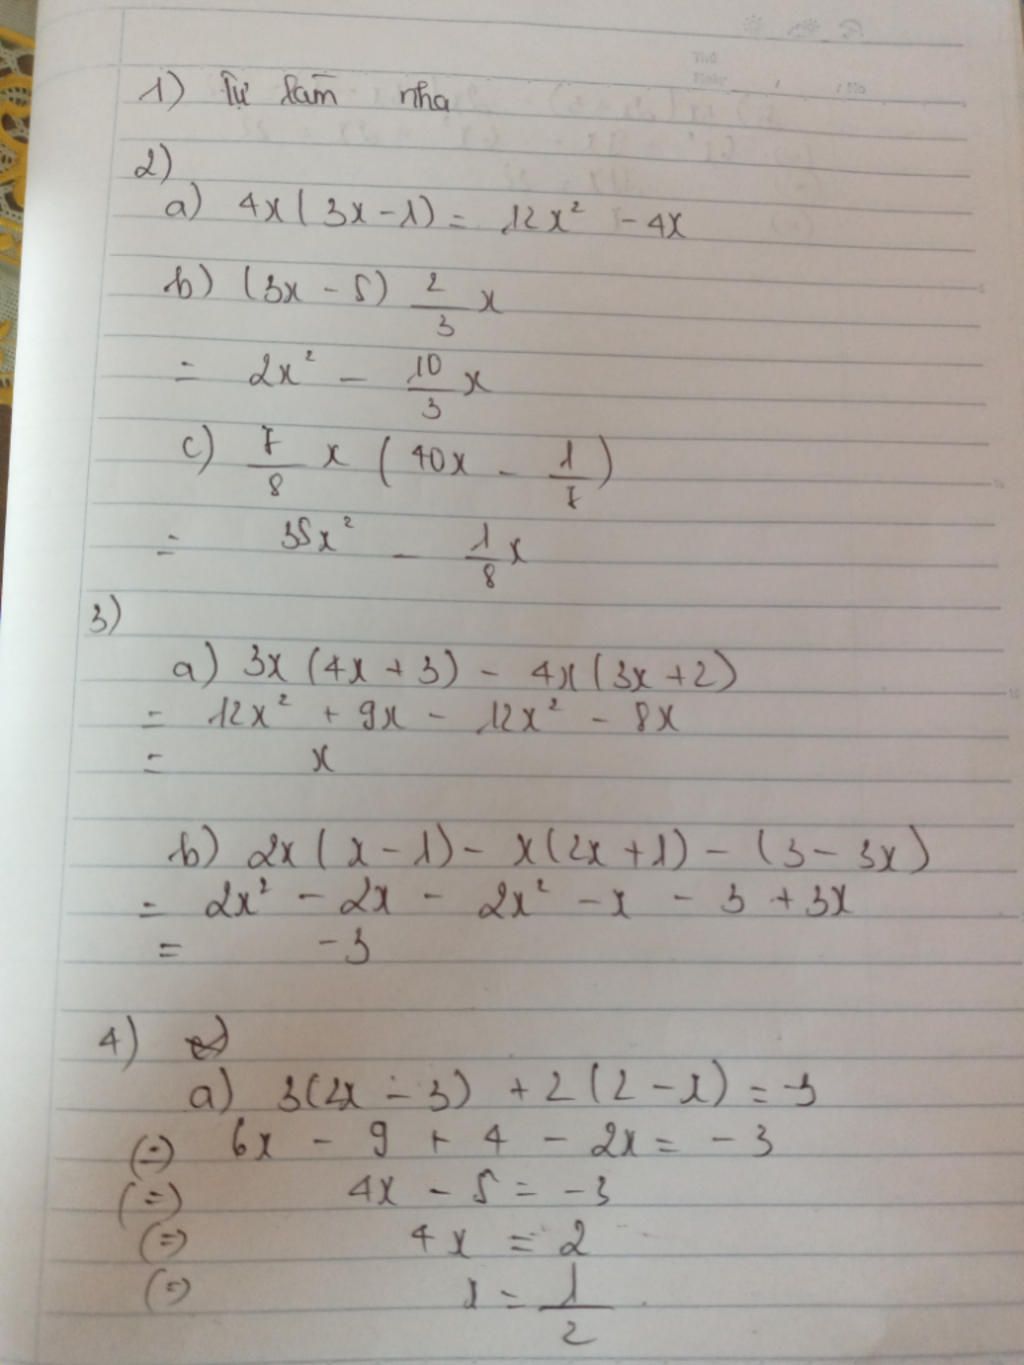 1) Tự làm nha
2)
a) 4x(3x-1) = 12x² - 4x
b) (3x - 5) 2/3 x
= 2x² - 10/3 x
c) 7/8 x (40x - 1/7)
= 35x² - 1/8 x
3)
a) 3x(4x + 3) - 4x(3x + 2)
= 12x² + 9x - 12x² - 8x
= x
b) 2x(x - 1) - x(2x + 1) - (3 - 3x)
= 2x² - 2x - 2x² - x - 3 + 3x
= -3
4)
a) 3(2x - 3) + 2(2 - x) = -3
(=) 6x - 9 + 4 - 2x = -3
(=) 4x - 5 = -3
(=) 4x = 2
(=) x = 1/2